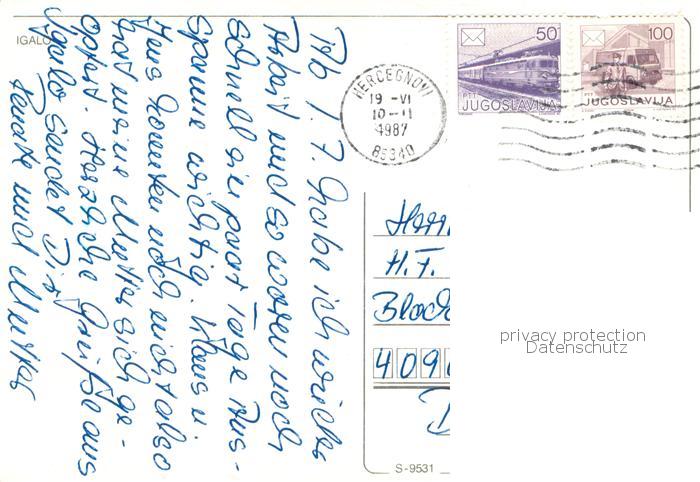 IGALO
Ab 1. 7. habe ich wieder
Arbeit und so waren noch
schnell ein paar Tage Aus-
spanne wichtig. Klaus u.
Jens konnten noch nicht also
hat meine Mutter sich ge-
opfert. Herzliche Grüße aus
Igalo sendet Dir
Renate und Mutter
HERCEGNOVI
19 -VI
10-11
1987
85340
50
PTT
JUGOSLAVIJA
100
PTT
JUGOSLAVIJA
Herr
H. F.
Block
409
privacy protection
Datenschutz
S-9531